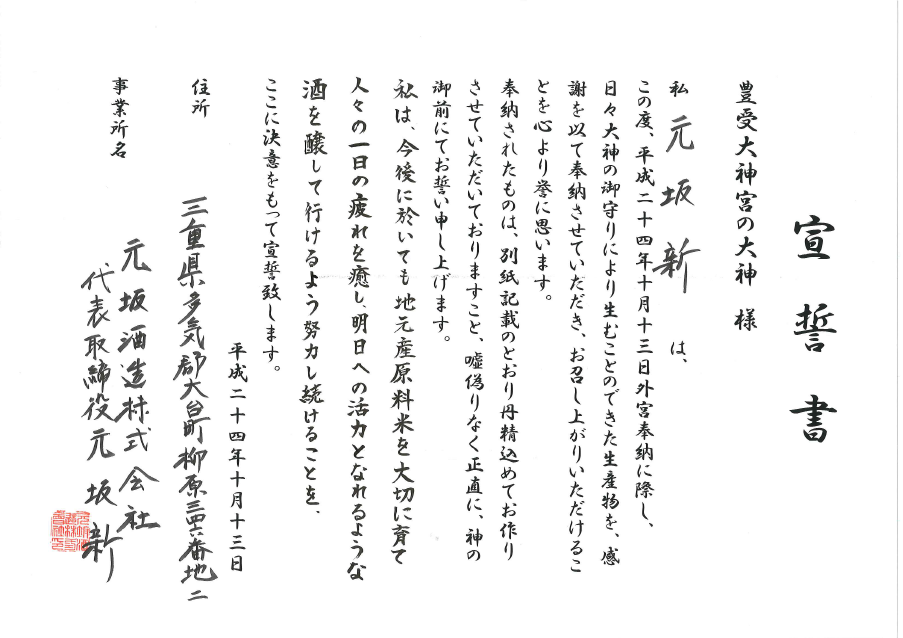 宣誓書
豊受大神宮の大神 様
私 元坂新 は、
この度、平成二十四年十月十三日外宮奉納に際し、
日々大神の御守りにより生むことのできた生産物を、感
謝を以て奉納させていただき、お召し上がりいただけるこ
とを心より誉に思います。
奉納されたものは、別紙記載のとおり丹精込めてお作り
させていただいておりますこと、嘘偽りなく正直に、神の
御前にてお誓い申し上げます。
私は、今後に於いても地元産原料米を大切に育て
人々の一日の疲れを癒し、明日への活力となれるような
酒を醸して行けるよう努力し続けることを、
ここに決意をもって宣誓致します。
平成二十四年十月十三日
住所 三重県多気郡大台町柳原三四六番地二
事業所名 元坂酒造株式会社
代表取締役元坂新